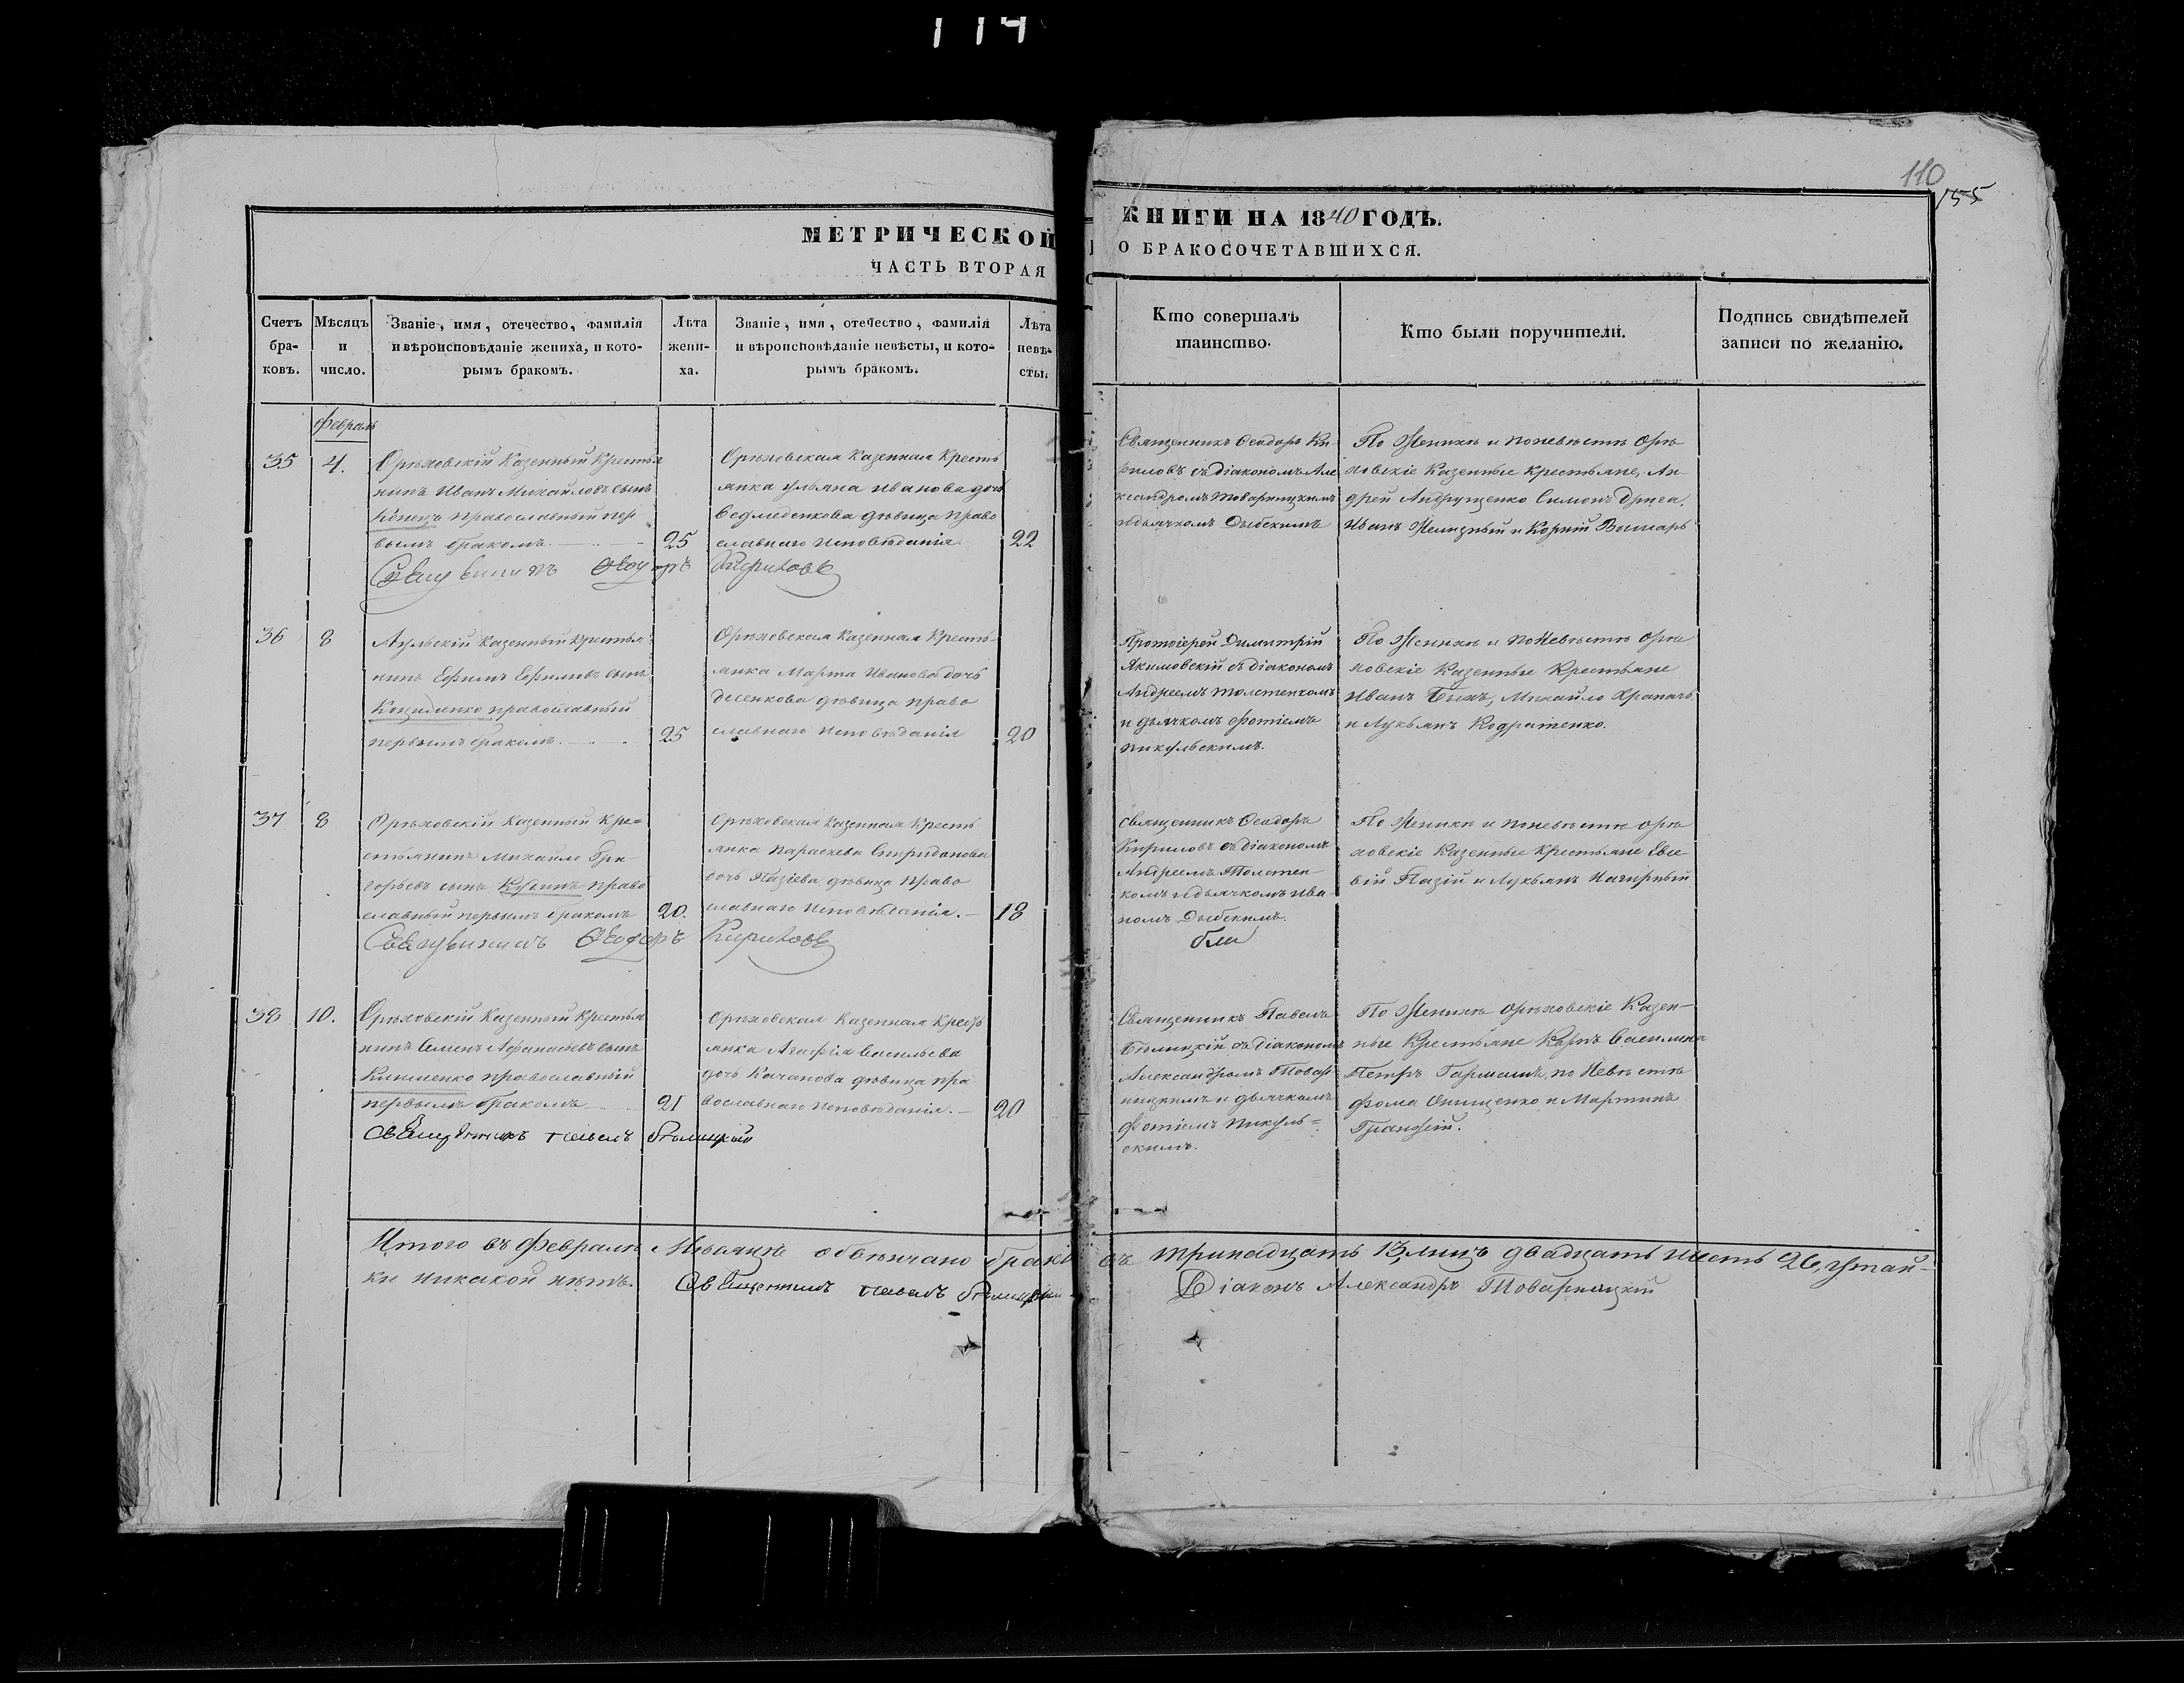 114
110
155
МЕТРИЧЕСКОЙ
ЧАСТЬ ВТОРАЯ
КНИГИ НА 1840 ГОДЪ.
О БРАКОСОЧЕТАВШИХСЯ.
Счетъ бра- ковъ.
Мѣсяцъ и число.
Званіе, имя, отечество, фамилія
и вѣроисповѣданіе жениха, и кото-
рымъ бракомъ.
Лѣта жени- ха.
Званіе, имя, отечество, фамилія
и вѣроисповѣданіе невѣсты, и кото-
рымъ бракомъ.
Лѣта невѣ- сты.
Кто совершалъ
таинство.
Кто были поручители.
Подпись свидѣтелей
записи по желанію.
Февраль
35
4.
Орѣховскій Казенный Крестья
нинъ Иванъ Михайловъ сынъ
Конецъ православный пер
вымъ бракомъ.
25
Орѣховская Казенная Кресть
янка Ульяна Иванова дочь
Ведмеденкова дѣвица право
славнаго исповѣданія.
22
Священникъ Ѳеодоръ Кириловъ
Священникъ Ѳеодоръ Ки-
риловъ съ діакономъ Але
ксандромъ Товарницкимъ
и дьячкомъ Дыбскимъ
По Женихѣ и по невѣстѣ Орѣ
ховскіе Казенные Крестьяне, Ан
дрей Андрущенко Симонъ
Иванъ и Корній
36
8
Агульскій Казенный Крестья
нинъ Ефимъ Ефимовъ сынъ
православный
первымъ бракомъ.
25
Орѣховская Казенная Кресть-
янка Марта Иванова дочь
Десенкова дѣвица право
славнаго исповѣданія
20
Протоіерей Димитрій
Якимовскій съ діакономъ
Андреемъ Толстенкомъ
и дьячкомъ Фотіемъ
Пикульскимъ.
По Женихѣ и по Невѣстѣ Орѣ
ховскіе Казенные Крестьяне
Иванъ Быкъ, Михайло Храпачъ
и Лукьянъ Кодратенко.
37
8
Орѣховскій Казенный Кре=
стьянинъ Михайло Гри-
горьевъ сынъ право
славный первымъ бракомъ
20.
Орѣховская Казенная Кресть
янка Параскева Спиридонова
дочь Пазіева дѣвица право
славнаго исповѣданія.
18
Священникъ Ѳеодоръ Кириловъ
Священникъ Ѳеодоръ
Кириловъ съ діакономъ
Андреемъ Толстен-
комъ и дьячкомъ Ива
номъ Дыбскимъ.
По Женихѣ и по невѣстѣ Орѣ
ховскіе Казенные Крестьяне Евсе
вій Пазій и Лукьянъ
38
10.
Орѣховскій Казенный Крестья
нинъ Семенъ Афанасьевъ сынъ
православный
первымъ бракомъ
21
Орѣховская Казенная Кресть
янка Агафія Васильева
дочь Качанова дѣвица пра
вославнаго исповѣданія.
20
Священникъ Павелъ Бѣлицкій
Священникъ Павелъ
Бѣлицкій съ діакономъ
Александромъ Товар
ницкимъ и дьячкомъ
Фотіемъ Пикуль=
скимъ.
По Женихѣ Орѣховскіе Казен-
ные Крестьяне Карпъ
Петръ Гармашъ, по Невѣстѣ
Фома Онищенко и Мартинъ
Итого въ Февралѣ Мѣсяцѣ обвѣнчано браковъ тринадцать 13, лицъ двадцать шесть 26, утай-
ки никакой нѣтъ.
Священникъ Павелъ Бѣлицкій
Діаконъ Александръ Товарницкій